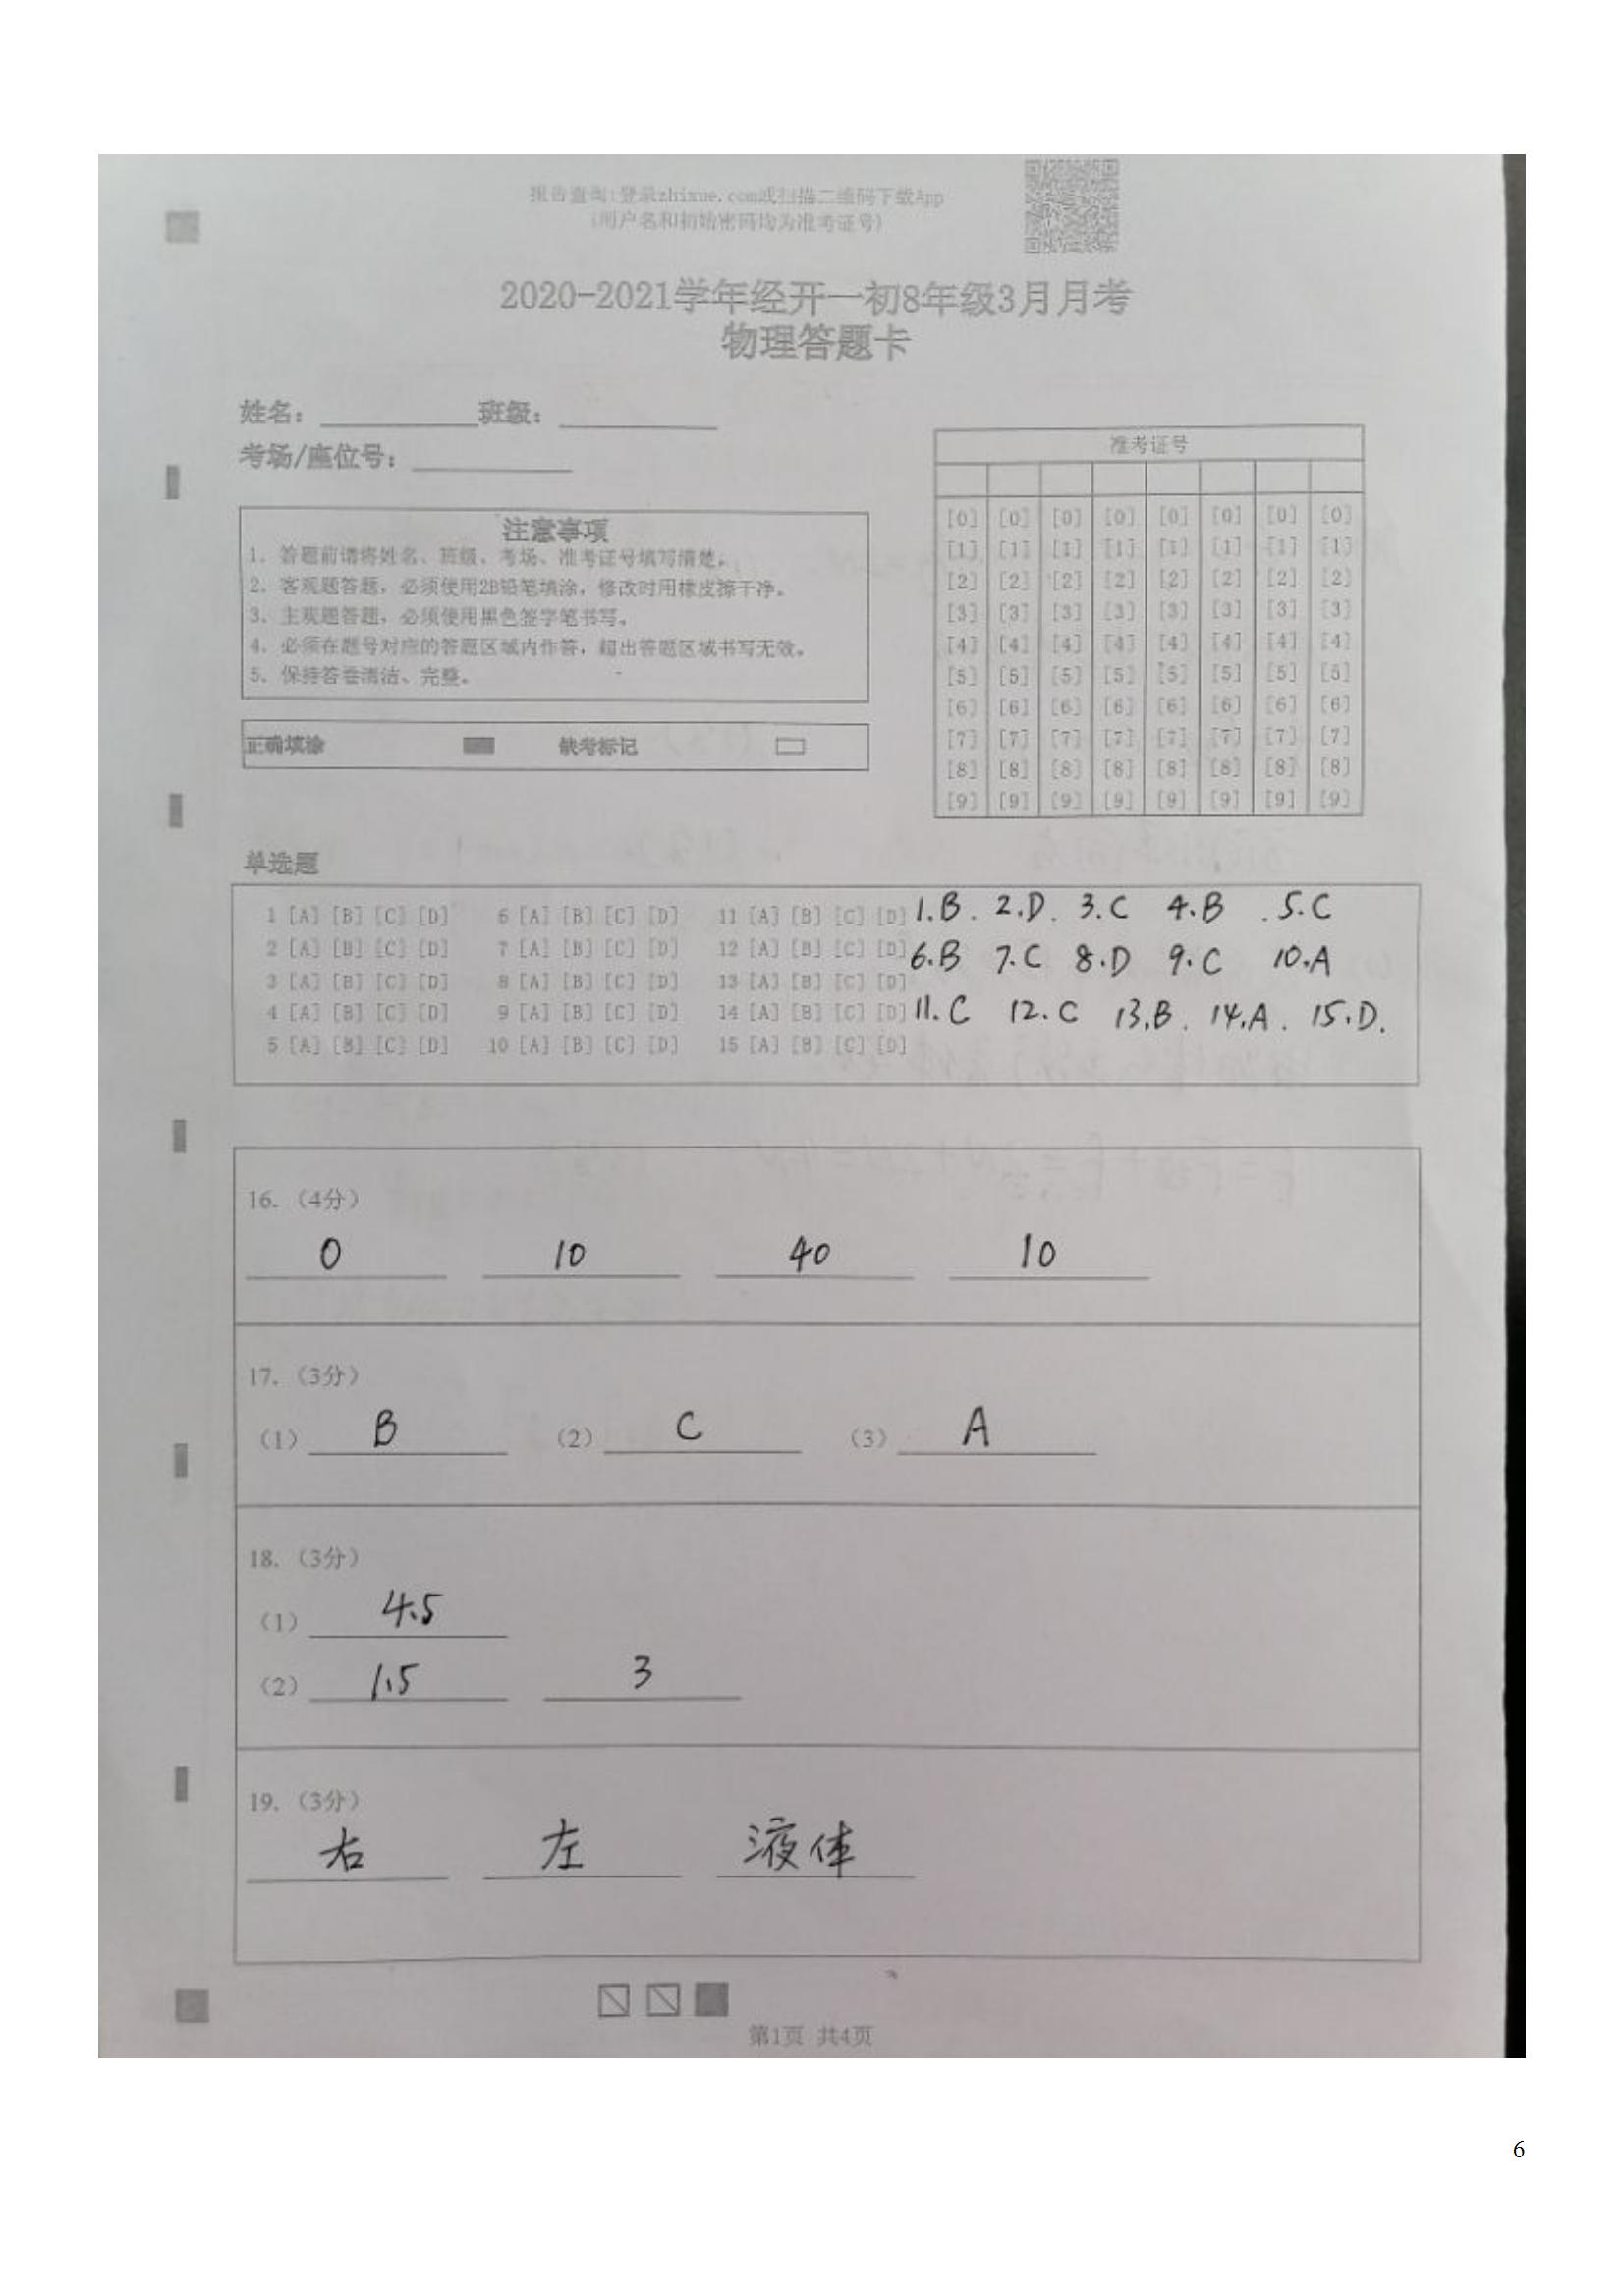 报告查询:登录zhixue.com或扫描二维码下载App
(用户名和初始密码均为准考证号)
2020-2021学年经开一初8年级3月月考
物理答题卡
姓名: 班级:
考场/座位号:
准考证号
注意事项
1. 答题前请将姓名、班级、考场、准考证号填写清楚。
2. 客观题答题,必须使用2B铅笔填涂,修改时用橡皮擦干净。
3. 主观题答题,必须使用黑色签字笔书写。
4. 必须在题号对应的答题区域内作答,超出答题区域书写无效。
5. 保持答卷清洁、完整。
正确填涂 缺考标记
[0] [0] [0] [0] [0] [0] [0] [0]
[1] [1] [1] [1] [1] [1] [1] [1]
[2] [2] [2] [2] [2] [2] [2] [2]
[3] [3] [3] [3] [3] [3] [3] [3]
[4] [4] [4] [4] [4] [4] [4] [4]
[5] [5] [5] [5] [5] [5] [5] [5]
[6] [6] [6] [6] [6] [6] [6] [6]
[7] [7] [7] [7] [7] [7] [7] [7]
[8] [8] [8] [8] [8] [8] [8] [8]
[9] [9] [9] [9] [9] [9] [9] [9]
单选题
1 [A] [B] [C] [D] 6 [A] [B] [C] [D] 11 [A] [B] [C] [D] 1.B. 2.D. 3.C 4.B .5.C
2 [A] [B] [C] [D] 7 [A] [B] [C] [D] 12 [A] [B] [C] [D] 6.B 7.C 8.D 9.C 10.A
3 [A] [B] [C] [D] 8 [A] [B] [C] [D] 13 [A] [B] [C] [D]
4 [A] [B] [C] [D] 9 [A] [B] [C] [D] 14 [A] [B] [C] [D] 11.C 12.C 13.B. 14.A. 15.D.
5 [A] [B] [C] [D] 10 [A] [B] [C] [D] 15 [A] [B] [C] [D]
16. (4分)
0 10 40 10
17. (3分)
(1) B (2) C (3) A
18. (3分)
(1) 4.5
(2) 1.5 3
19. (3分)
右 左 液体
第1页 共4页
6